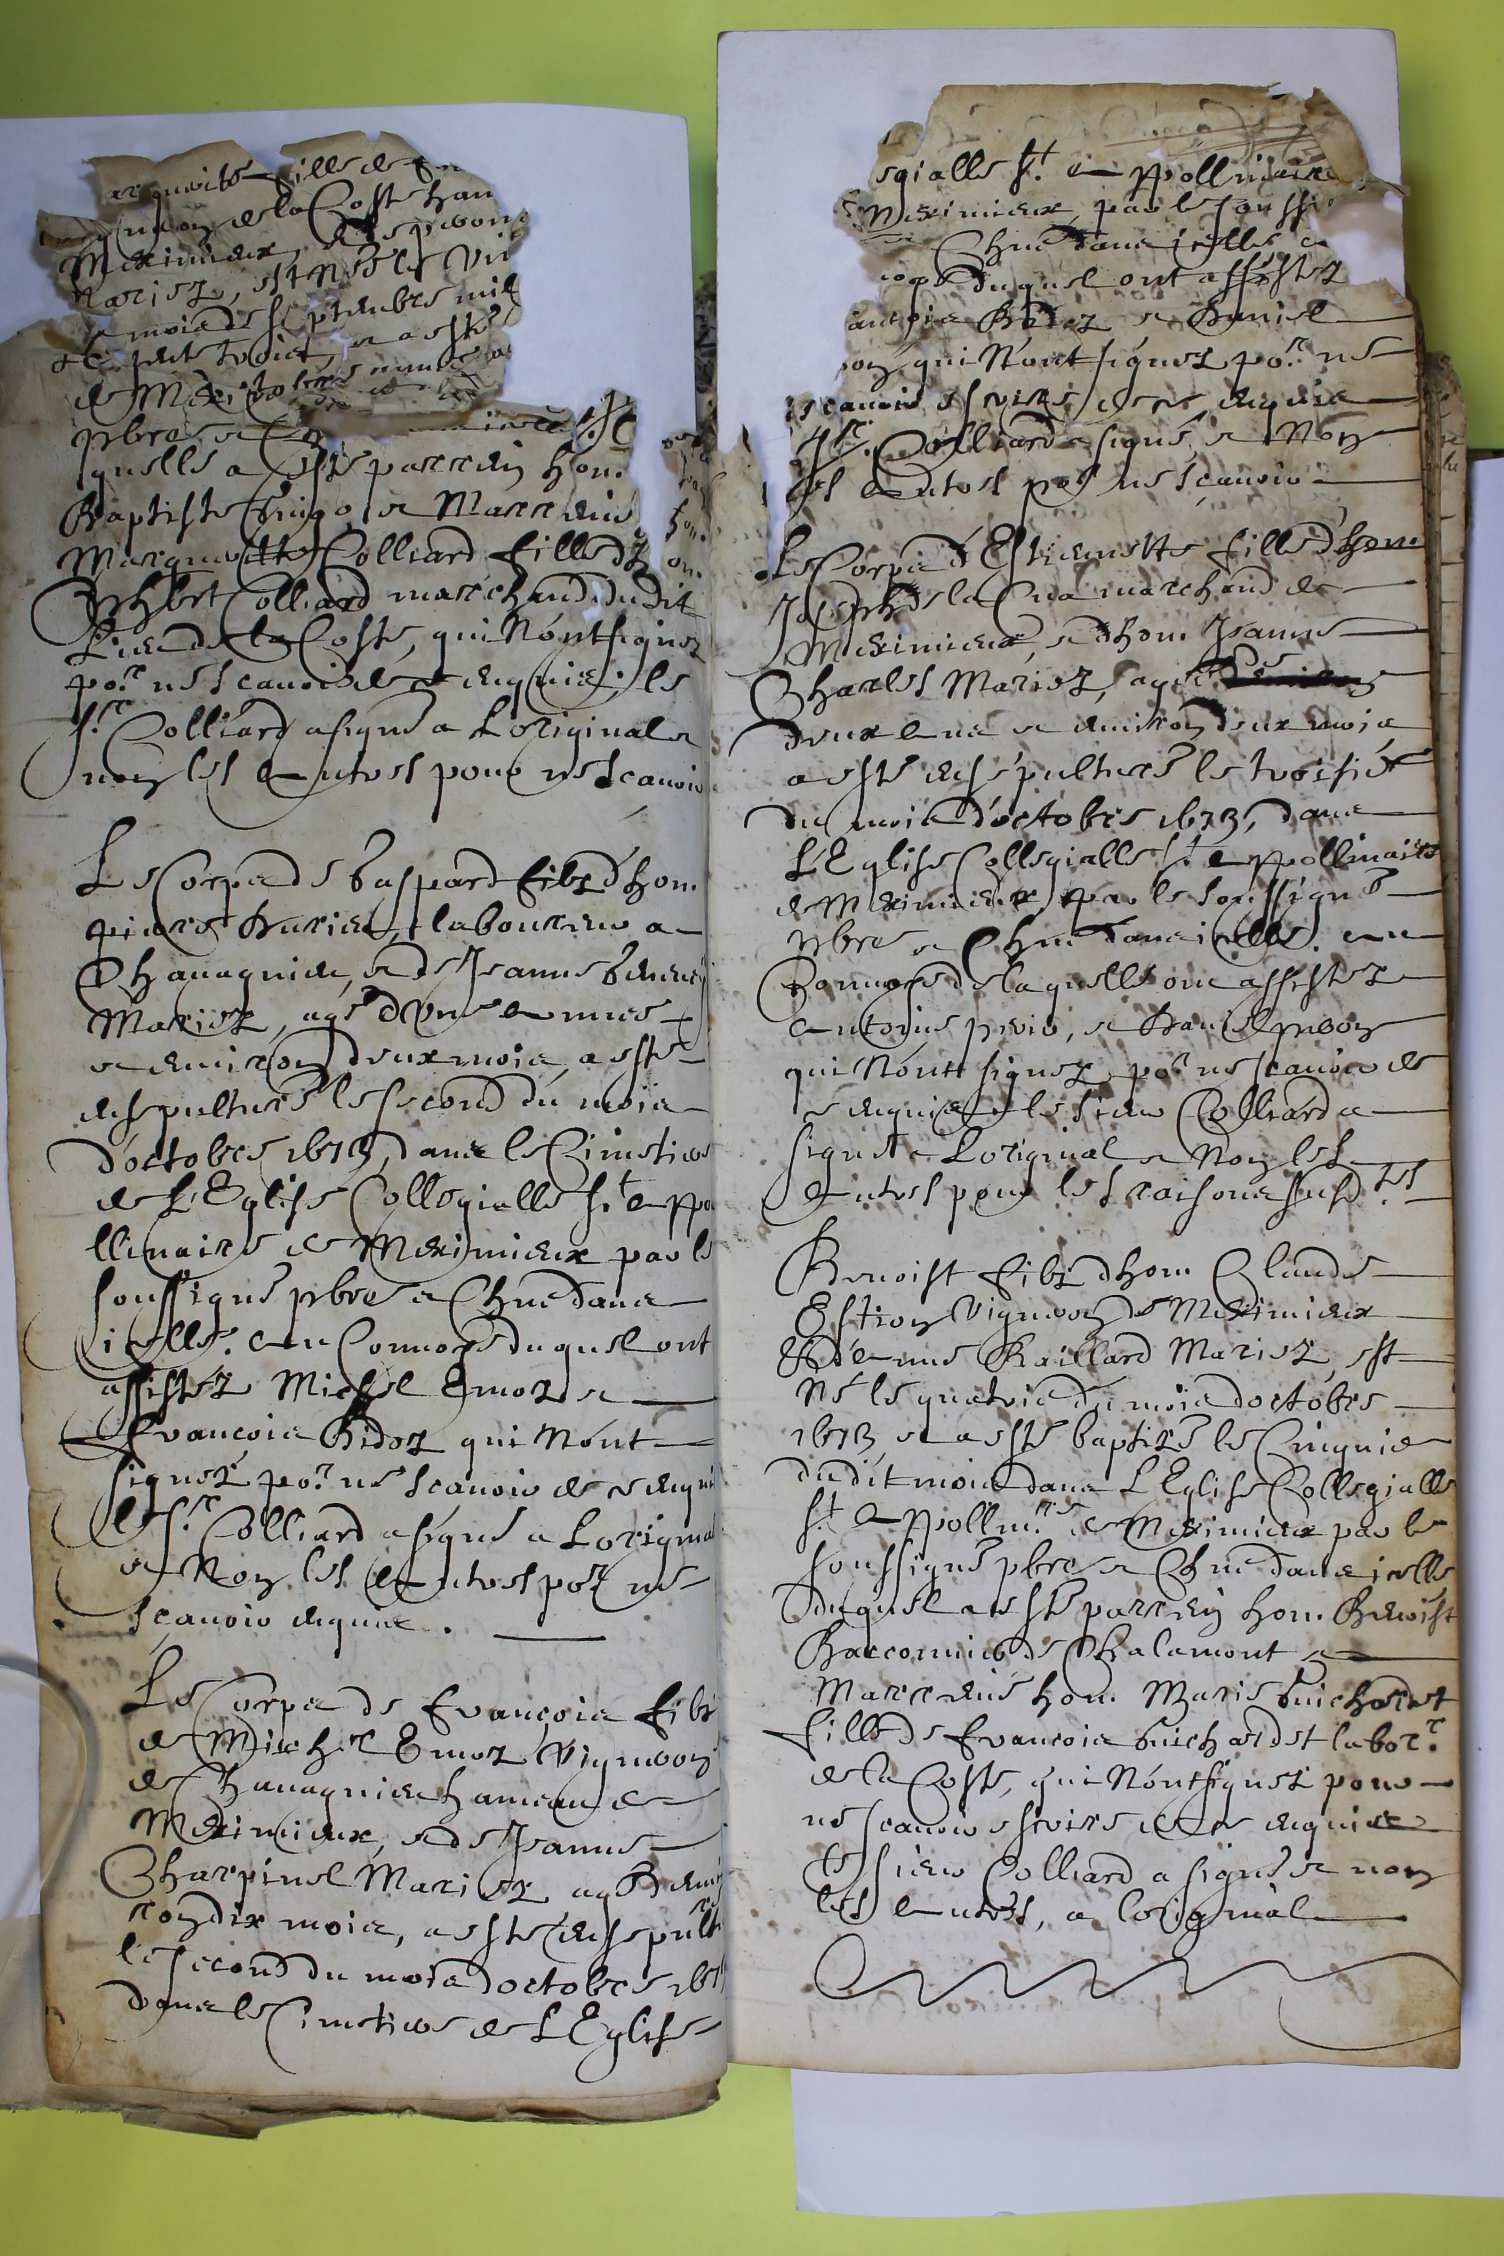 arguerite fille de
de la Coste ham
Meximieux,
Mariez, est Née le vin
mois de septembre mil
treis, et a esté
de Mexi
pbre et
quelle a esté parrein hon.
Baptiste et Marreine
Margueritte Colliard fille dh
Colliard marchand dudit
Lieu de la Coste, qui Nont signez
por. ne scavoir de ce enquis, le
sr. Colliard a signé a Loriginal et
non les autres pour ne scavoir
Le Corps de Gaspard filz dhon.
pierre laboureur a
Chavagnieu, et de Jeanne
Mariez, agé dune année
et environ deux mois, a esté
ensepulturé le second du mois
doctobre 1673, dans le Cimetiere
de LEglise Collegialle st. appo
llinaire de Meximieux par le
soussigné pbre et Chne dans
icelle. au Convoye duquel ont
assistéz Michel Emoz et
françois Bidoz qui Nont
signez por. ne scavoir de ce enqui
le sr. Colliard a signé a Lorigina
et Non les autres por. ne
scavoir enquis.
Le Corps de françois filz
de Michel Emoz Vigneron
de Chavagnieu hameau de
Meximieux, et de Jeanne
Charpinel Mariez agé denvi
ron dix mois, a esté ensepult
le second du mois doctobre 167
dans le Cimetiere de LEglise
egialle st. appollinaire
Meximieux, par le soussi
Chne dans icelle
duquel ont assistez
antoine Bidoz et Daniel
qui Nont signez por. ne
scavoir escrire, de ce enquis
sr. Colliard a signé, et Non
les autres por ne scavoir
Le Corps dEstiennette fille dhon.
Joseph de la Cua marchand de
Meximieux, et dhon. Jeanne
Charles Mariez, agée
deux ans et environ deux mois
a esté ensepulturé le troisié
du mois doctobre 1673, dans
LEglise Collegialle st. appollinaire
de Meximieux par le soussigné
pbre et Chne dans icelle. au
Convoye de laquelle ont assistez
antoine et Daniel
qui Nont signez por. ne scavoir de
ce enquis, le sieur Colliard a
signé a Loriginal et Non les
autres pour les raisons susdtes
Benoist filz dhon. Claude
Estion Vigneron de Meximieux
Et danne Raillard Mariez, est
Né le quatrie du mois doctobre
1673, et a esté baptizé le Cinquie
dudit mois dans LEglise Collegialle
st. appollinre de Meximieux par le
soussigné pbre et Chne dans icelle
duquel a esté parrein hon. Benoist
de Chalamont et
Marreine hon. Marie Guichardet
fille de françois Guichardet labor.
de la Coste, qui Nont signez pour
ne scavoir escrire de ce enquis
le sieur Colliard a signé et non
les autres, a loriginal